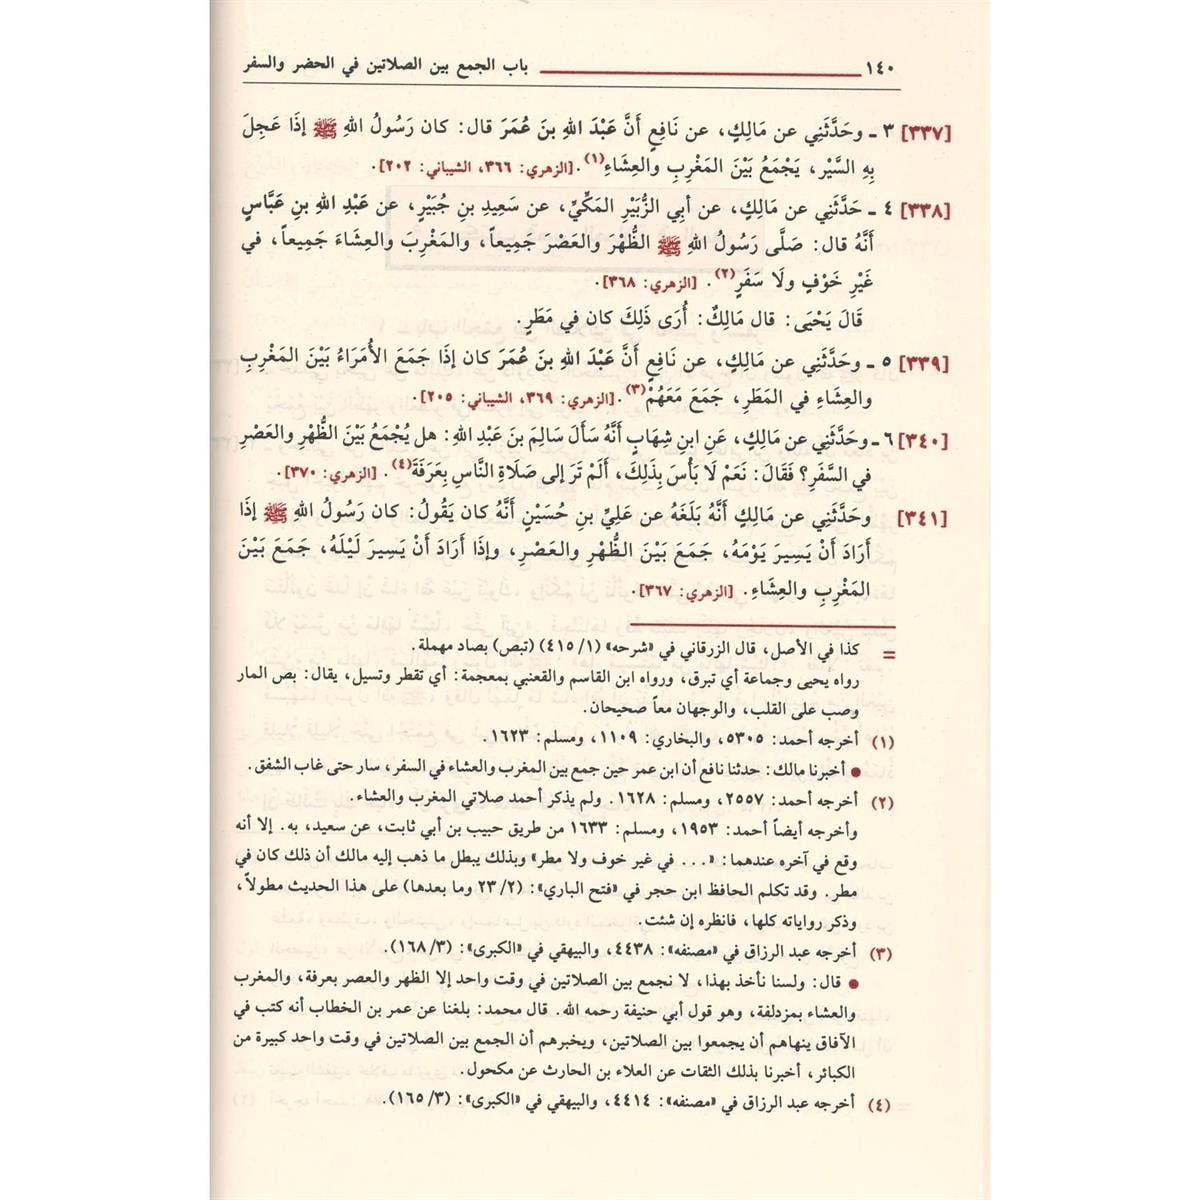 ١٤٠ باب الجمع بين الصلاتين في الحضر والسفر
[٣٣٧] ٣ ـ وحَدَّثَنِي عن مَالِكٍ، عن نَافِعٍ أَنَّ عَبْدَ اللهِ بنَ عُمَرَ قال: كان رَسُولُ اللهِ ﷺ إذَا عَجِلَ
بِهِ السَّيْر، يَجْمَعُ بَيْنَ المَغْرِبِ والعِشَاءِ(١). [الزهري: ٣٦٦، الشيباني: ٢٠٢].
[٣٣٨] ٤ ـ حَدَّثَنِي عن مَالِكٍ، عن أبي الزُّبَيْرِ المَكِّيِّ، عن سَعِيدِ بنِ جُبَيْرٍ، عن عَبْدِ اللهِ بنِ عَبَّاسٍ
أَنَّهُ قال: صَلَّى رَسُولُ اللهِ ﷺ الظُّهْرَ والعَصْرَ جَمِيعاً، والمَغْرِبَ والعِشَاءَ جَمِيعاً، في
غَيْرِ خَوْفٍ ولَا سَفَرٍ(٢). [الزهري: ٣٦٨].
قَالَ يَحْيَى: قال مَالِكٌ: أُرَى ذَلِكَ كان في مَطَرٍ.
[٣٣٩] ٥ ـ وحَدَّثَنِي عن مَالِكٍ، عن نَافِعٍ أَنَّ عَبْدَ اللهِ بنَ عُمَرَ كان إذَا جَمَعَ الأُمَرَاءُ بَيْنَ المَغْرِبِ
والعِشَاءِ في المَطَرِ، جَمَعَ مَعَهُمْ(٣). [الزهري: ٣٦٩، الشيباني: ٢٠٥].
[٣٤٠] ٦ ـ وحَدَّثَنِي عن مَالِكٍ، عَنِ ابنِ شِهَابٍ أَنَّهُ سَأَلَ سَالِمَ بنَ عَبْدِ اللهِ: هل يُجْمَعُ بَيْنَ الظُّهْرِ والعَصْرِ
في السَّفَرِ؟ فَقَالَ: نَعَمْ لَا بَأْسَ بِذَلِكَ، أَلَمْ تَرَ إلى صَلَاةِ النَّاسِ بِعَرَفَةَ(٤). [الزهري: ٣٧٠].
[٣٤١] وحَدَّثَنِي عن مَالِكٍ أَنَّهُ بَلَغَهُ عن عَلِيِّ بنِ حُسَيْنٍ أَنَّهُ كان يَقُولُ: كان رَسُولُ اللهِ ﷺ إذَا
أَرَادَ أَنْ يَسِيرَ يَوْمَهُ، جَمَعَ بَيْنَ الظُّهْرِ والعَصْرِ، وإذَا أَرَادَ أَنْ يَسِيرَ لَيْلَهُ، جَمَعَ بَيْنَ
المَغْرِبِ والعِشَاءِ. [الزهري: ٣٦٧].
= كذا في الأصل، قال الزرقاني في «شرحه» (١/ ٤١٥) (تبص) بصاد مهملة.
رواه يحيى وجماعة أي تبرق، ورواه ابن القاسم والقعنبي بمعجمة: أي تقطر وتسيل، يقال: بص المار
وصب على القلب، والوجهان معاً صحيحان.
(١) أخرجه أحمد: ٥٣٠٥، والبخاري: ١١٠٩، ومسلم: ١٦٢٣.
● أخبرنا مالك: حدثنا نافع أن ابن عمر حين جمع بين المغرب والعشاء في السفر، سار حتى غاب الشفق.
(٢) أخرجه أحمد: ٢٥٥٧، ومسلم: ١٦٢٨. ولم يذكر أحمد صلاتي المغرب والعشاء.
وأخرجه أيضاً أحمد: ١٩٥٣، ومسلم: ١٦٣٣ من طريق حبيب بن أبي ثابت، عن سعيد، به. إلا أنه
وقع في آخره عندهما: «... في غير خوف ولا مطر» وبذلك يبطل ما ذهب إليه مالك أن ذلك كان في
مطر. وقد تكلم الحافظ ابن حجر في «فتح الباري»: (٢/ ٢٣ وما بعدها) على هذا الحديث مطولاً،
وذكر رواياته كلها، فانظره إن شئت.
(٣) أخرجه عبد الرزاق في «مصنفه»: ٤٤٣٨، والبيهقي في «الكبرى»: (٣/ ١٦٨).
● قال: ولسنا نأخذ بهذا، لا نجمع بين الصلاتين في وقت واحد إلا الظهر والعصر بعرفة، والمغرب
والعشاء بمزدلفة، وهو قول أبي حنيفة رحمه الله. قال محمد: بلغنا عن عمر بن الخطاب أنه كتب في
الآفاق ينهاهم أن يجمعوا بين الصلاتين، ويخبرهم أن الجمع بين الصلاتين في وقت واحد كبيرة من
الكبائر، أخبرنا بذلك الثقات عن العلاء بن الحارث عن مكحول.
(٤) أخرجه عبد الرزاق في «مصنفه»: ٤٤١٤، والبيهقي في «الكبرى»: (٣/ ١٦٥).